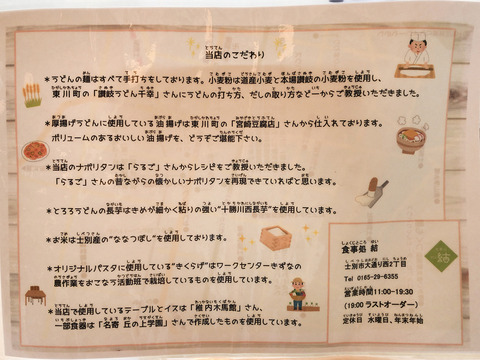 当店のこだわり
*うどんの麺はすべて手打ちをしております。小麦粉は道産小麦と本場讃岐の小麦粉を使用し、
東川町の「讃岐うどん千幸」さんにうどんの打ち方、だしの取り方など一からご教授いただきました。
*厚揚げうどんに使用している油揚げは東川町の「宮崎豆腐店」さんから仕入れております。
ボリュームのあるおいしい油揚げを、どうぞご堪能下さい。
*当店のナポリタンは「らるご」さんからレシピをご教授いただきました。
「らるご」さんの昔ながらの懐かしいナポリタンを再現できていればと思います。
*とろろうどんの長芋はきめが細かく粘りの強い"十勝川西長芋"を使用しています。
*お米は士別産の"ななつぼし"を使用しております。
*オリジナルパスタに使用している"きくらげ"はワークセンターきずなの
農作業をおこなう活動班で栽培しているものを使用しています。
*当店で使用しているテーブルとイスは「稚内木馬館」さん、
一部食器は「名寄 丘の上学園」さんで作成したものを使用しています。
結
食事処 結
士別市大通り西2丁目
Tel 0165-29-6355
営業時間11:00~19:30
(19:00 ラストオーダー)
定休日 水曜日、年末年始